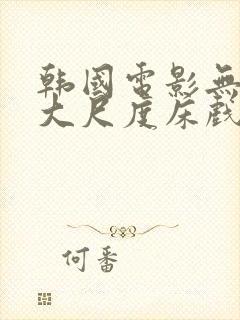 韩国電影無
大尺度床戲
何番